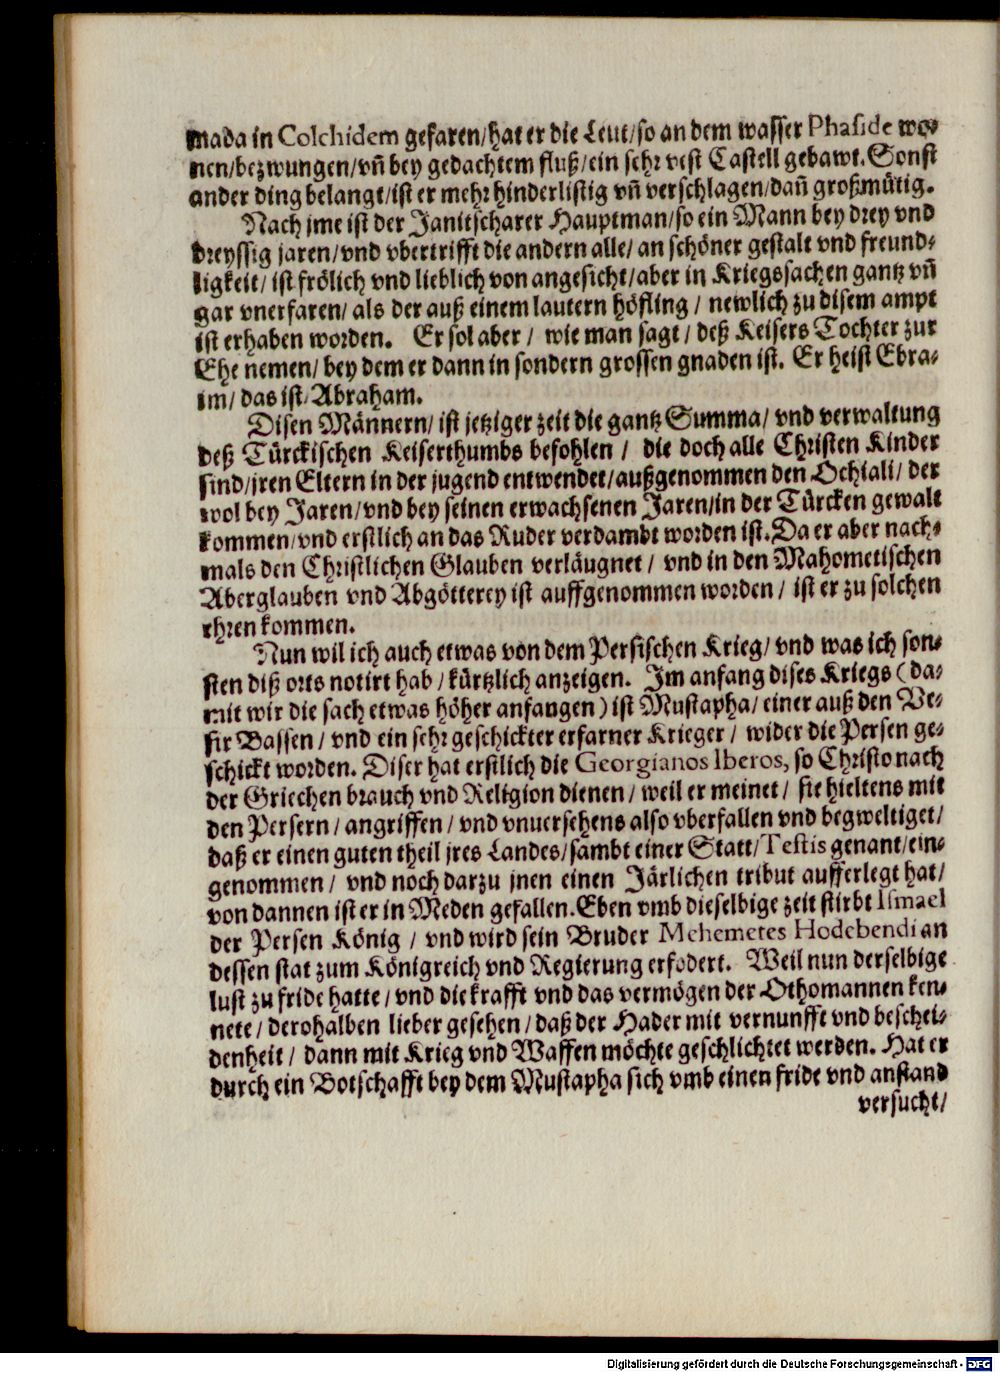 mada in Colchidem gefaren/hat er die Leut/so an dem wasser Phaside wo-
nen/bezwungen/vñ bey gedachtem fluß/ein sehr vest Castell gebawt. Sonst
ander ding belangt/ist er mehr hinderlistig vñ verschlagen/dañ großmütig.
Nach jme ist der Janitscharer Hauptman/so ein Mann bey drey vnd
dreyssig jaren/vnd vbertrifft die andern alle/ an schöner gestalt vnd freund-
ligkeit/ ist frölich vnd lieblich von angesicht/aber in Kriegssachen gantz vñ
gar vnerfaren/ als der auß einem lautern höfling / newlich zu disem ampt
ist erhaben worden. Er sol aber / wie man sagt / deß Keisers Tochter zur
Ehe nemen/ bey dem er dann in sondern grossen gnaden ist. Er heist Ebra-
im/ das ist/ Abraham.
Disen Männern/ ist jetziger zeit die gantz Summa/ vnd verwaltung
deß Türckischen Keiserthumbs befohlen / die doch alle Christen Kinder
sind/jren Eltern in der jugend entwendet/außgenommen den Ochiali/ der
wol bey Jaren/vnd bey seinen erwachsenen Jaren/in der Türcken gewalt
kommen/vnd erstlich an das Ruder verdambt worden ist. Da er aber nach-
mals den Christlichen Glauben verläugnet / vnd in den Mahometischen
Aberglauben vnd Abgötterey ist auffgenommen worden / ist er zu solchen
ehren kommen.
Nun wil ich auch etwas von dem Persischen Krieg/ vnd was ich son-
sten diß orts notirt hab / kürtzlich anzeigen. Im anfang dises Kriegs (da-
mit wir die sach etwas höher anfangen) ist Mustapha/ einer auß den Ve-
sir Bassen / vnd ein sehr geschickter erfarner Krieger / wider die Persen ge-
schickt worden. Diser hat erstlich die Georgianos Iberos, so Christo nach
der Griechen brauch vnd Religion dienen / weil er meinet / sie hieltens mit
den Persern / angriffen / vnd vnuersehens also vberfallen vnd begweltiget/
daß er einen guten theil jres Landes/ sambt einer Statt/ Testis genant/ein-
genommen / vnd noch darzu jnen einen Järlichen tribut aufferlegt hat/
von dannen ist er in Meden gefallen. Eben vmb dieselbige zeit stirbt Ismael
der Persen König / vnd wird sein Bruder Mehemetes Hodebendi an
dessen stat zum Königreich vnd Regierung erfodert. Weil nun derselbige
lust zu fride hatte / vnd die krafft vnd das vermögen der Othomannen ken-
nete / derohalben lieber gesehen / daß der Hader mit vernunfft vnd beschei-
denheit / dann mit Krieg vnd Waffen möchte geschlichtet werden. Hat er
durch ein Botschafft bey dem Mustapha sich vmb einen fride vnd anstand
versucht/
Digitalisierung gefördert durch die Deutsche Forschungsgemeinschaft - DFG